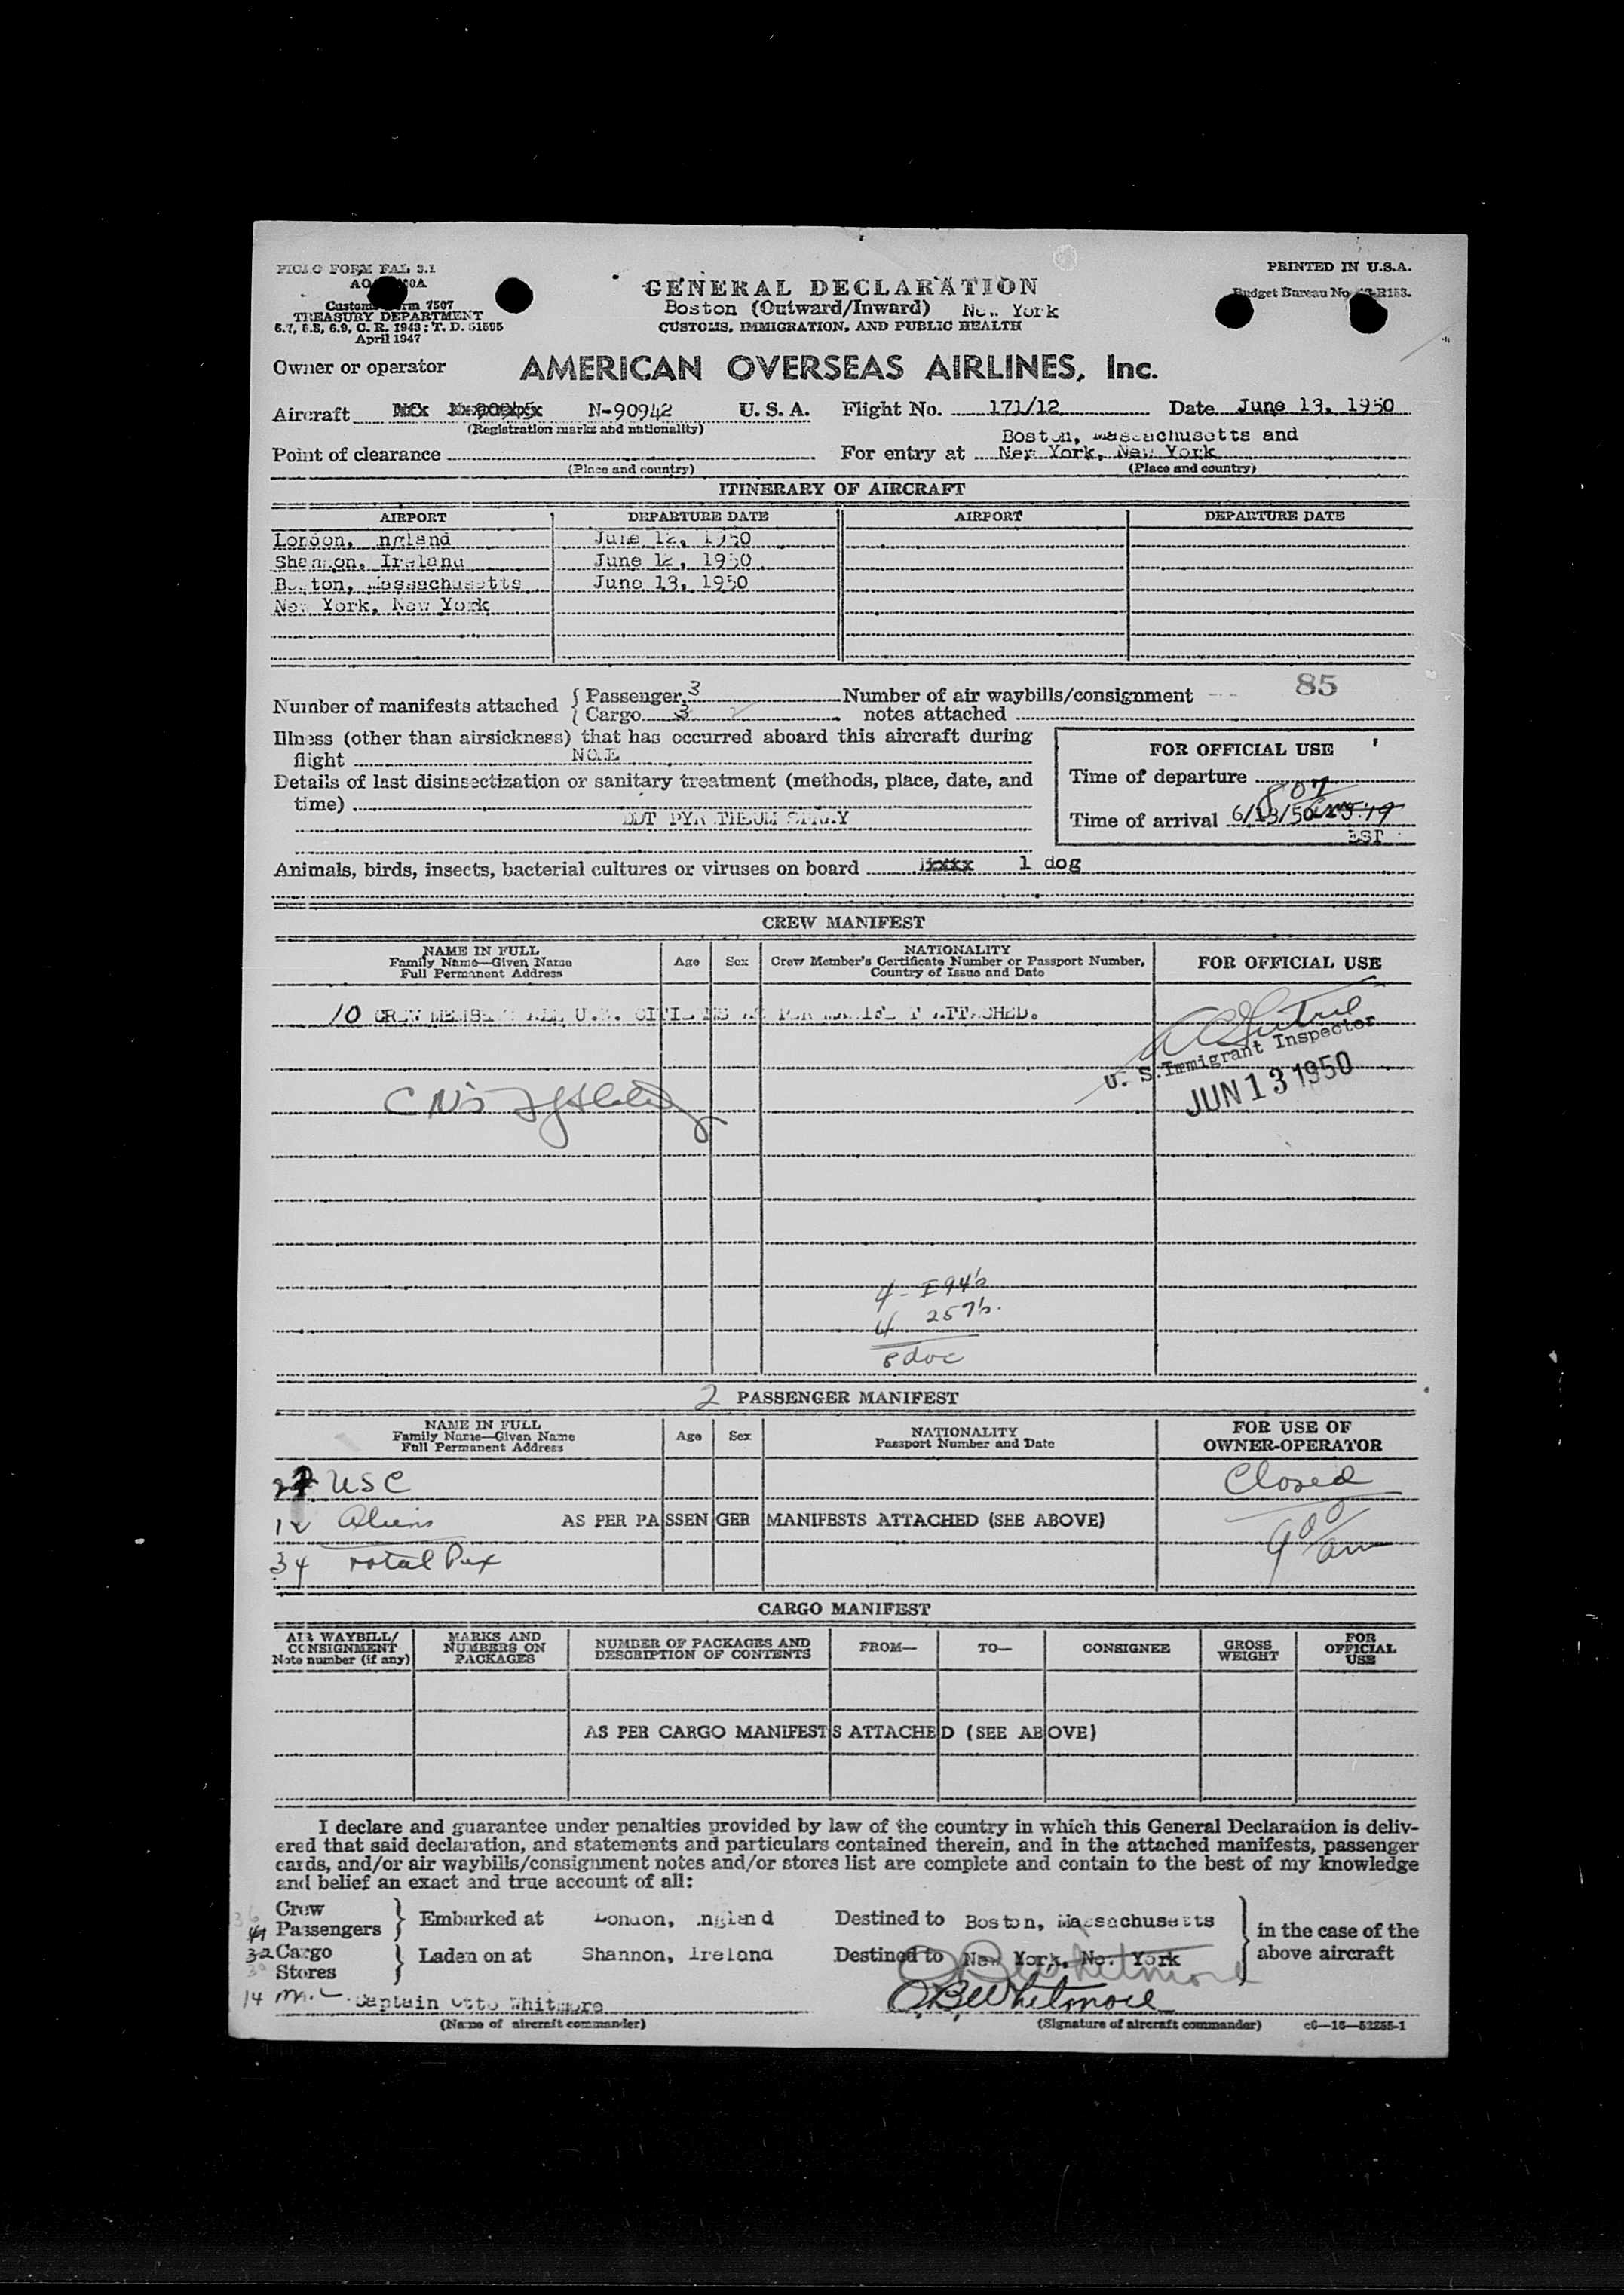 PICAO FORM FAL 3.1
Customs Form 7507
TREASURY DEPARTMENT
6.7, 6.8, 6.9, C. R. 1943; T. D. 51595
April 1947
PRINTED IN U.S.A.
Budget Bureau No.
GENERAL DECLARATION
Boston (Outward/Inward) New York
CUSTOMS, IMMIGRATION, AND PUBLIC HEALTH
Owner or operator AMERICAN OVERSEAS AIRLINES, Inc.
Aircraft N-90942 U. S. A. Flight No. 171/12 Date June 13, 1950
(Registration marks and nationality)
Boston, Massachusetts and
Point of clearance For entry at New York, New York
(Place and country) (Place and country)
ITINERARY OF AIRCRAFT
AIRPORT DEPARTURE DATE AIRPORT DEPARTURE DATE
London, England June 12, 1950
Shannon, Ireland June 12, 1950
Boston, Massachusetts June 13, 1950
New York, New York
Number of manifests attached { Passenger 3 Number of air waybills/consignment 85
{ Cargo 3 2 notes attached
Illness (other than airsickness) that has occurred aboard this aircraft during
flight NONE
Details of last disinsectization or sanitary treatment (methods, place, date, and
time)
DDT PYRETHEUM SPRAY
FOR OFFICIAL USE
Time of departure
807
Time of arrival 6/13/50 am 5:19
EST
Animals, birds, insects, bacterial cultures or viruses on board 1 dog
CREW MANIFEST
NAME IN FULL
Family Name—Given Name
Full Permanent Address
Age Sex
NATIONALITY
Crew Member's Certificate Number or Passport Number,
Country of Issue and Date
FOR OFFICIAL USE
10 CREW MEMBERS ALL U.S. CITIZENS AS PER MANIFEST ATTACHED.
U. S. Immigrant Inspector
JUN 13 1950
4 - I 94's
4 257's.
8 doc
2 PASSENGER MANIFEST
NAME IN FULL
Family Name—Given Name
Full Permanent Address
Age Sex
NATIONALITY
Passport Number and Date
FOR USE OF
OWNER-OPERATOR
USC Closed
12 Aliens AS PER PASSENGER MANIFESTS ATTACHED (SEE ABOVE) 9 00 am
34 Total Pax
CARGO MANIFEST
AIR WAYBILL/
CONSIGNMENT
Note number (if any)
MARKS AND
NUMBERS ON
PACKAGES
NUMBER OF PACKAGES AND
DESCRIPTION OF CONTENTS
FROM— TO— CONSIGNEE
GROSS
WEIGHT
FOR
OFFICIAL
USE
AS PER CARGO MANIFESTS ATTACHED (SEE ABOVE)
I declare and guarantee under penalties provided by law of the country in which this General Declaration is deliv-
ered that said declaration, and statements and particulars contained therein, and in the attached manifests, passenger
cards, and/or air waybills/consignment notes and/or stores list are complete and contain to the best of my knowledge
and belief an exact and true account of all:
Crew
Passengers } Embarked at London, England Destined to Boston, Massachusetts } in the case of the
32 Cargo } Laden on at Shannon, Ireland Destined to New York, New York above aircraft
Stores
OBWhitmore
14 Captain Otto Whitmore OBWhitmore
(Name of aircraft commander) (Signature of aircraft commander) c6—16—52255-1